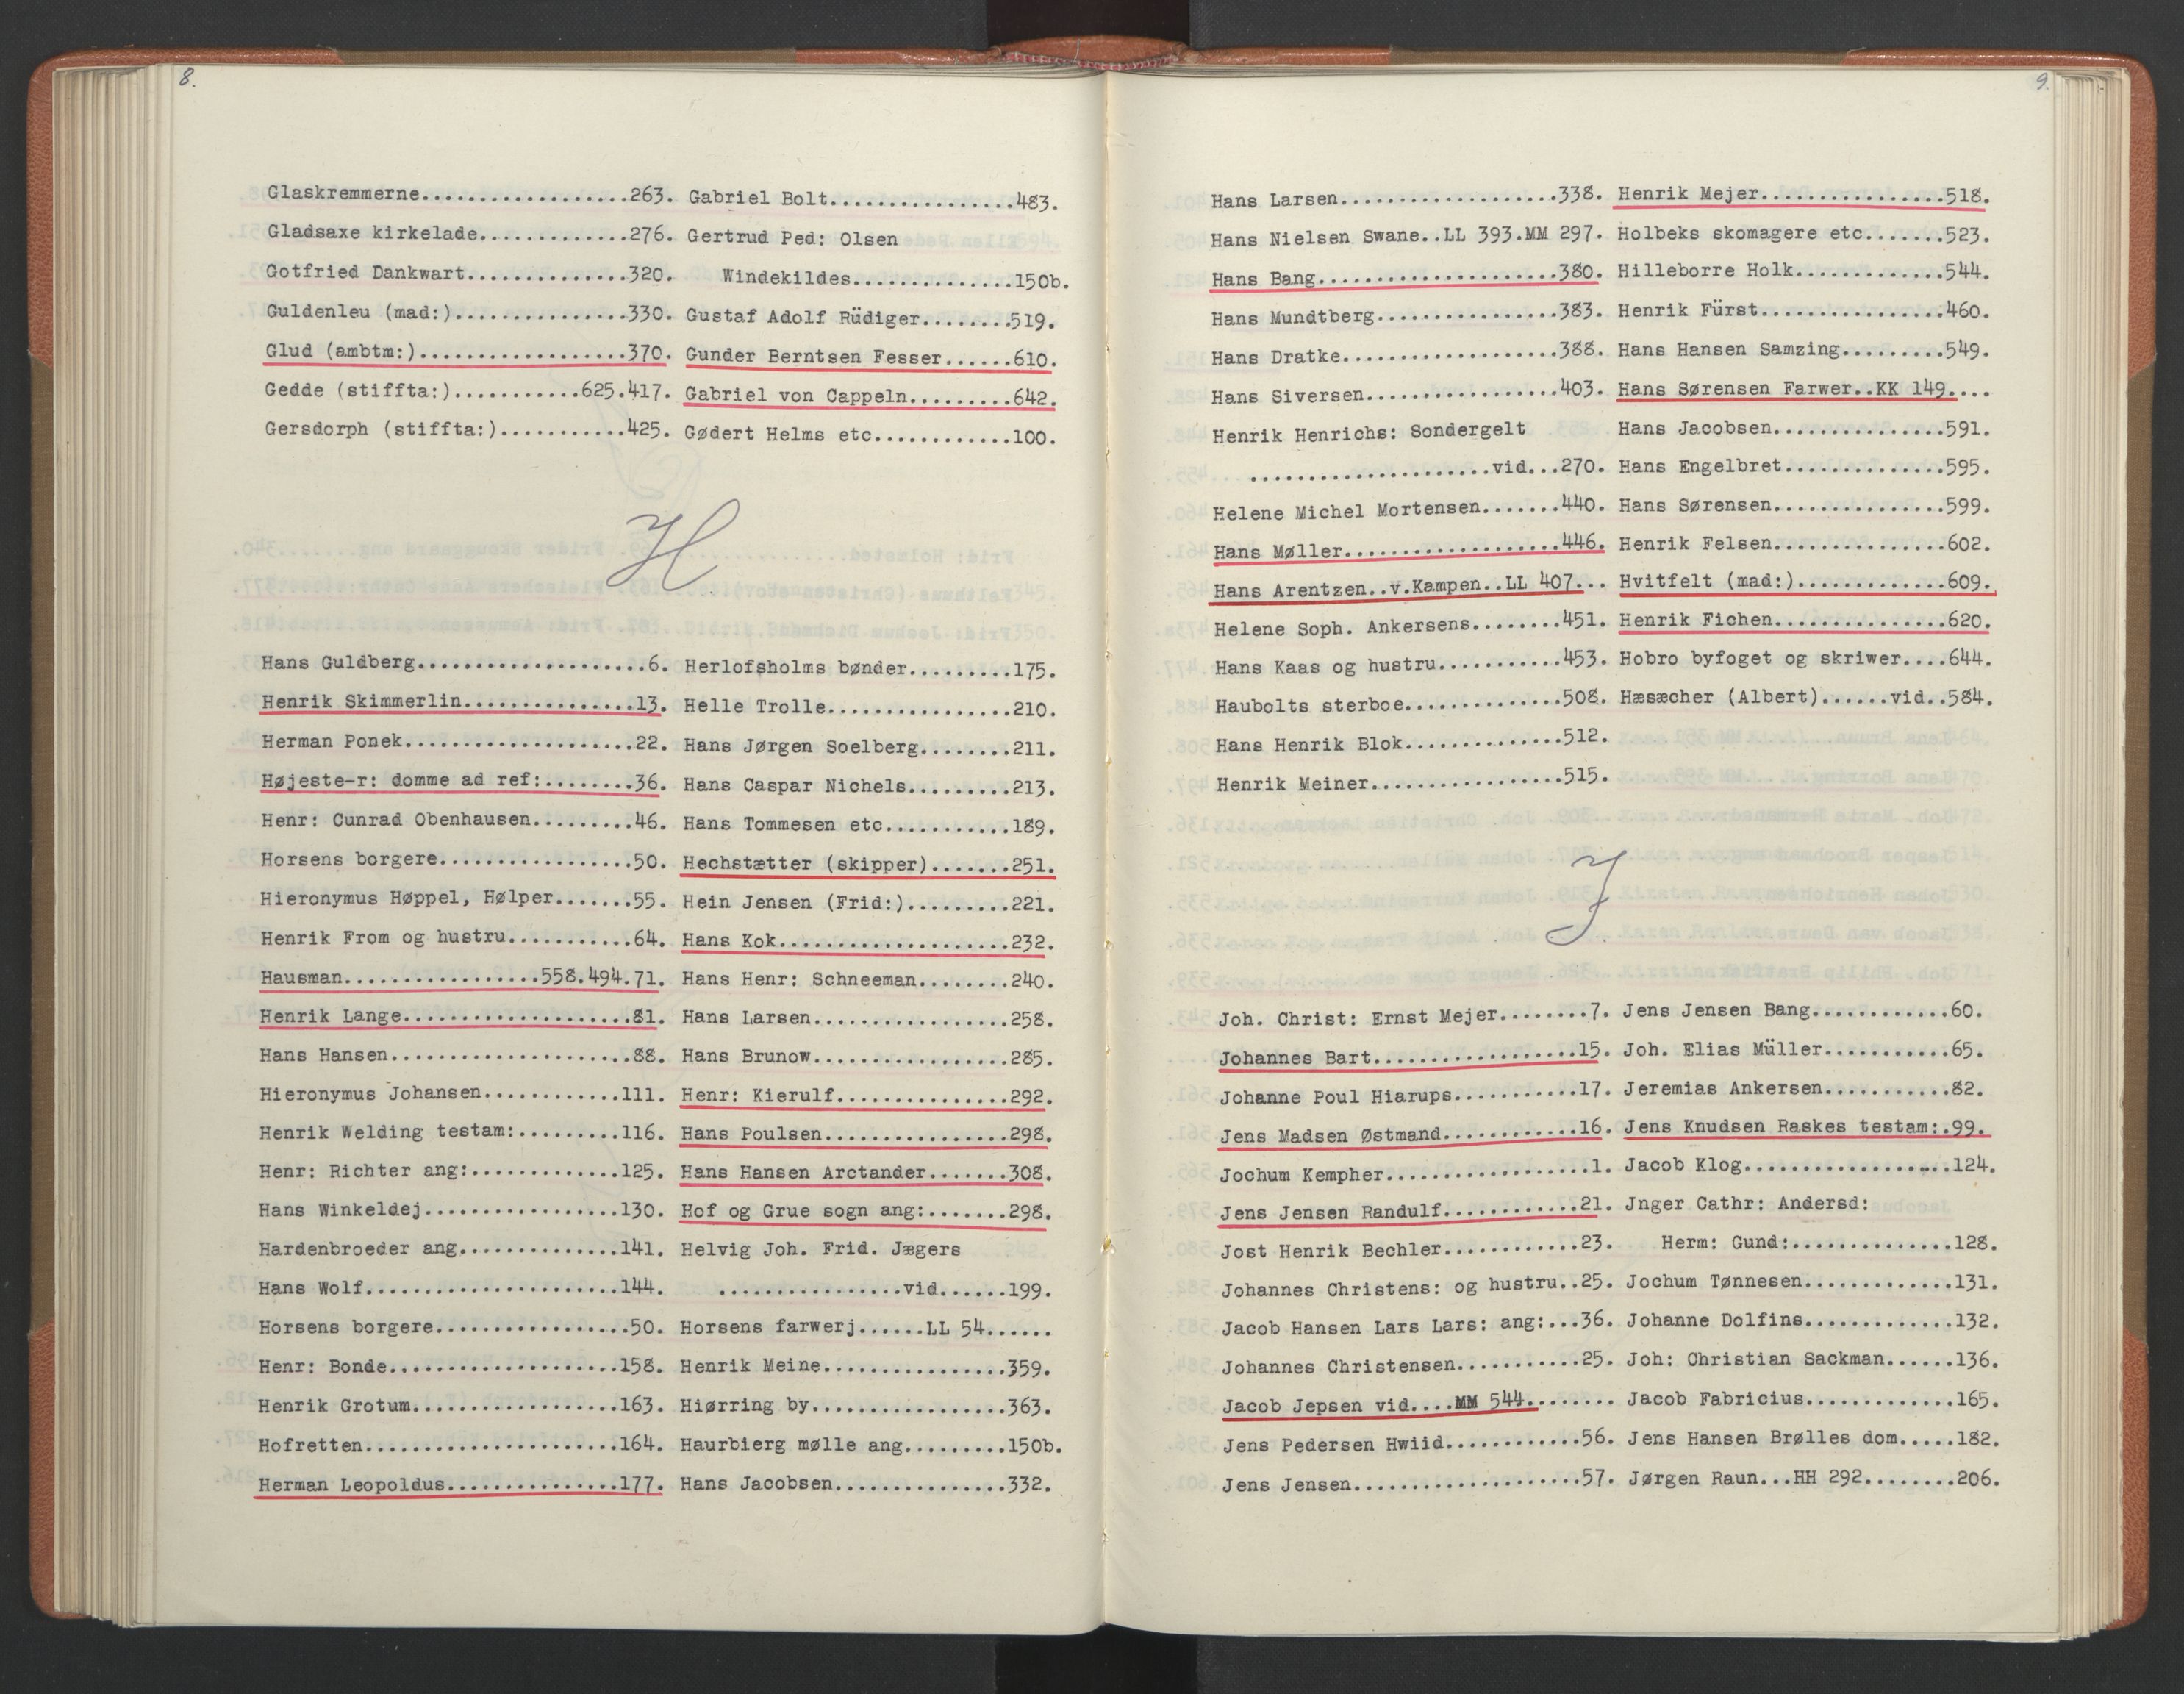 8.
Glaskremmerne..................263.
Gladsaxe kirkelade.............276.
Gotfried Dankwart..............320.
Guldenleu (mad:)...............330.
Glud (ambtm:)..................370.
Gedde (stiffta:)...........625.417.
Gersdorph (stiffta:)...........425.
Gabriel Bolt................483.
Gertrud Ped: Olsen
Windekildes..............150b.
Gustaf Adolf Rüdiger........519.
Gunder Berntsen Fesser......610.
Gabriel von Cappeln.........642.
Gødert Helms etc............100.
H
Hans Guldberg....................6.
Henrik Skimmerlin...............13.
Herman Ponek....................22.
Højeste-r: domme ad ref:........36.
Henr: Cunrad Obenhausen.........46.
Horsens borgere.................50.
Hieronymus Høppel, Hølper.......55.
Henrik From og hustru...........64.
Hausman.................558.494.71.
Henrik Lange....................81.
Hans Hansen.....................88.
Hieronymus Johansen............111.
Henrik Welding testam:.........116.
Henr: Richter ang:.............125.
Hans Winkeldej.................130.
Hardenbroeder ang..............141.
Hans Wolf......................144.
Horsens borgere.................50.
Henr: Bonde....................158.
Henrik Grotum..................163.
Hofretten......................164.
Herman Leopoldus...............177.
Herlofsholms bønder.........175.
Helle Trolle................210.
Hans Jørgen Soelberg........211.
Hans Caspar Nichels.........213.
Hans Tommesen etc...........189.
Hechstætter (skipper).......251.
Hein Jensen (Frid:).........221.
Hans Kok....................232.
Hans Henr: Schneeman........240.
Hans Larsen.................258.
Hans Brunow.................285.
Henr: Kierulf...............292.
Hans Poulsen................298.
Hans Hansen Arctander.......308.
Hof og Grue sogn ang:.......298.
Helvig Joh. Frid. Jægers
................vid......199.
Horsens farwerj......LL 54......
Henrik Meine................359.
Hiørring by.................363.
Haurbierg mølle ang.........150b.
Hans Jacobsen...............332.
9.
Hans Larsen...................338.
Hans Nielsen Swane..LL 393.MM 297.
Hans Bang.....................380.
Hans Mundtberg................383.
Hans Dratke...................388.
Hans Siversen.................403.
Henrik Henrichs: Sondergelt
.....................vid...270.
Helene Michel Mortensen.......440.
Hans Møller...................446.
Hans Arentzen..v.Kampen..LL 407...
Helene Soph. Ankersens........451.
Hans Kaas og hustru...........453.
Haubolts sterboe..............508.
Hans Henrik Blok..............512.
Henrik Meiner.................515.
Henrik Mejer................518.
Holbeks skomagere etc.......523.
Hilleborre Holk.............544.
Henrik Fürst................460.
Hans Hansen Samzing.........549.
Hans Sørensen Farwer..KK 149....
Hans Jacobsen...............591.
Hans Engelbret..............595.
Hans Sørensen...............599.
Henrik Felsen...............602.
Hvitfelt (mad:).............609.
Henrik Fichen...............620.
Hobro byfoget og skriwer....644.
Hæsæcher (Albert)......vid..584.
J
Joh. Christ: Ernst Mejer........7.
Johannes Bart..................15.
Johanne Poul Hiarups...........17.
Jens Madsen Østmand............16.
Jochum Kempher..................1.
Jens Jensen Randulf............21.
Jost Henrik Bechler............23.
Johannes Christens: og hustru..25.
Jacob Hansen Lars Lars: ang:...36.
Johannes Christensen...........25.
Jacob Jepsen vid....MM 544........
Jens Pedersen Hwiid............56.
Jens Jensen....................57.
Jens Jensen Bang............60.
Joh. Elias Müller...........65.
Jeremias Ankersen...........82.
Jens Knudsen Raskes testam:.99.
Jacob Klog..................124.
Jnger Cathr: Andersd:
Herm: Gund:..............128.
Jochum Tønnesen.............131.
Johanne Dolfins.............132.
Joh: Christian Sackman......136.
Jacob Fabricius.............165.
Jens Hansen Brølles dom.....182.
Jørgen Raun...HH 292........206.